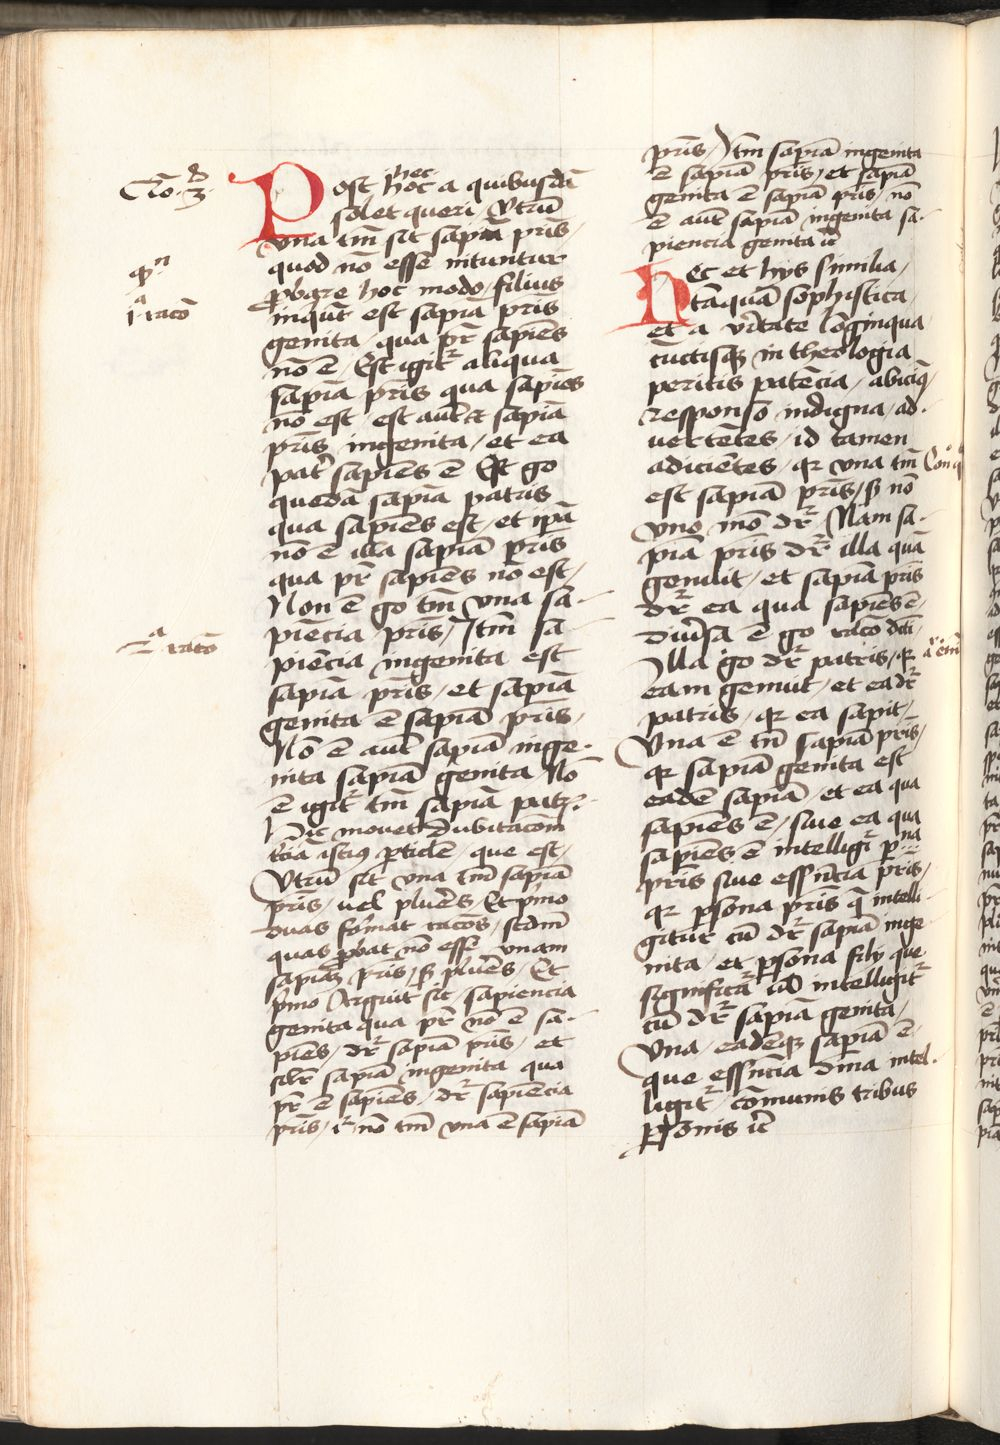 Qo. d 3
Post hoc hec a quibusdā
solet queri Vtrū
vna tm̄ sit sapīa pr̄is,
quod nō esse nituntur
ꝓbare hoc modo, filius
inquīt est sapīa pr̄is
genita, qua pr̄ sapiens
nō ē, Est igit̄ aliqua
sapīa pr̄is qua sapiēs
nō est, est aut̄ et sapīa
pr̄is ingenita, et ea
pat̄ sapiens ē Est go
quedā sapīa patris
qua sapiens est, et ip̄a
nō ē illa sapīa pr̄is
qua pr̄ sapiens nō est,
Non ē go tm̄ vna sa-
piēcia pr̄is, Itm̄ sa-
piēcia ingenita est
sapīa pr̄is, et sapīa
genita ē sapīa pr̄is,
Nō ē aut̄ sapīa inge-
nita sapīa genita Nō
ē igit̄ tm̄ sapīa patr̄
Hic mouet dubitacōm
t̄ciā istiꝰ ꝑticl̄e, que est,
Vtrū sit vna tm̄ sapīa
pr̄is, uel plur̄es, Et p̄mo
duas format racōes, scd̄m
quas ꝓbat nō esse vnam
sapīaꝫ pr̄is, sꝫ plur̄es, Et
p̄mo Arguit sic, sapiencia
genita qua pr̄ nō ē sa-
piēs, dr̄ sapīa pr̄is, et
sil̄r sapīa ingenita qua
pr̄ ē sapiens, dr̄ sapiēcia
pr̄is, ir̄ nō tm̄ vna ē sapīa
1ᵃ racō
2ᵃ racō
pr̄is, Itm̄ sapīa ingenita
ē sapīa pr̄is, et sapīa
genita ē sapīa pr̄is, nō
ē aut̄ sapīa ingenita sa-
piencia genita ic̄
Hec et hijs similia,
tāquā sophistica,
et a v̄itate lōginqua
cūctisqꝫ in theologia
peritis patēcia, abiciꝰ,
responso indigna, ad-
uertētes, id tamen
adicientes, qr vna tm̄
est sapīa pr̄is, sꝫ nō
vno mō dr̄, Nam sa-
pīa pr̄is dr̄ illa quā
genuit, et sapīa pr̄is
dr̄ ea qua sapiēs ē,
Diu̅sa ē go racō dcī,
Illa go dr̄ patris, qr
eam genuit, et ea dr̄
patris, qr ea sapit,
Vna ē tn̄ sapīa pr̄is,
qr sapīa genita est
eadē sapīa, et ea qua
sapiens ē, siue ea qua
sapiens ē intelligr̄ p̄na
pr̄is siue ess̄ncia pr̄is,
qr ꝑsona pr̄is q̄ intelli-
gitur cū dr̄ sapīa inge-
nita, et ꝑsona filij que
significat̄ ul̄ intelligit̄
cū dr̄ sapīa genita,
Vna, eadēqꝫ sapīa ē
que ess̄ncia diīna intel-
ligit̄, cōmunis tribus
ꝑsonis ic̄